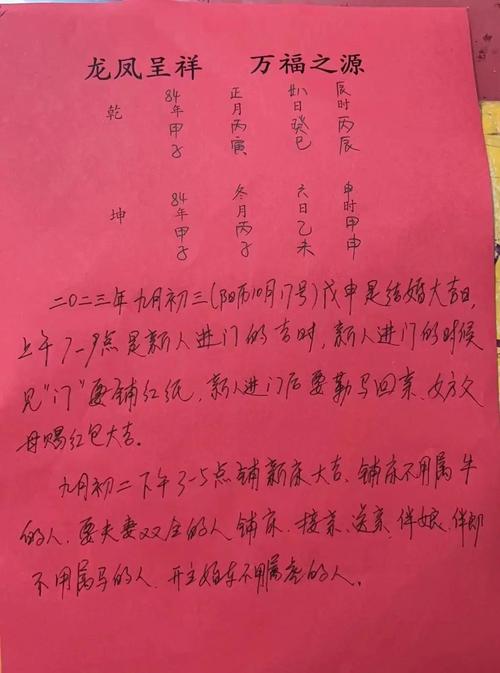 龙凤呈祥 万福之源
乾 84年甲子 正月丙寅 廿日癸巳 辰时丙辰
坤 84年甲子 冬月丙子 六日乙未 申时甲申
二〇二三年九月初三(阳历10月17号)戊申是结婚大吉日,
上午7-9点是新人进门的吉时,新人进门的时候
见"门"要铺红纸,新人进门后要勒马回亲、女方父
母赐红包大吉。
九月初二下午3-5点铺新床大吉、铺床不用属牛
的人.要夫妻双全的人铺床.接亲、送亲、伴娘、伴郎
不用属马的人.开主婚车不用属虎的人。